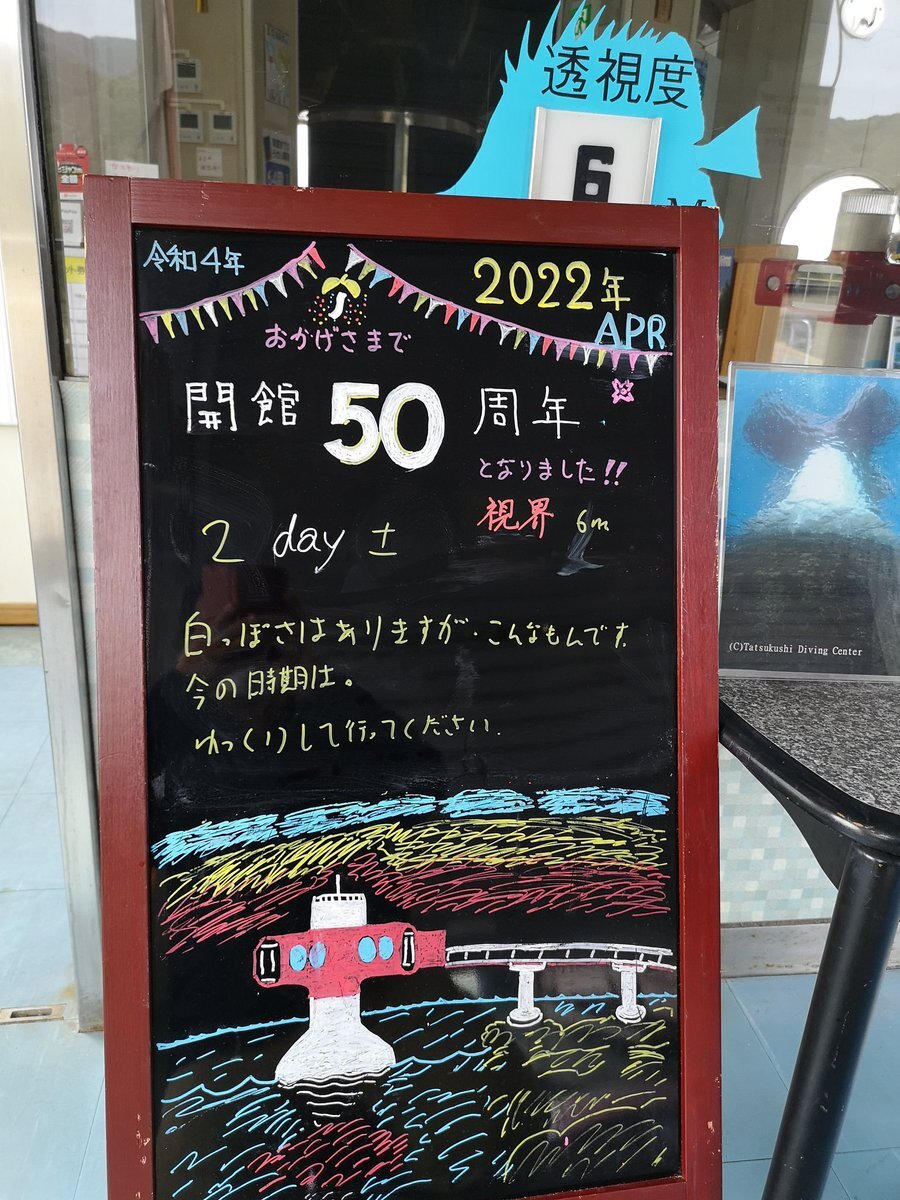 透視度
6
M
令和4年
2022年
APR
おかげさまで
開館50周年
となりました!!
視界 6m
2 day 土
白っぽさはありますが・こんなもんです
今の時期は。
ゆっくりして行ってください.
(C)Tatsukushi Diving Center